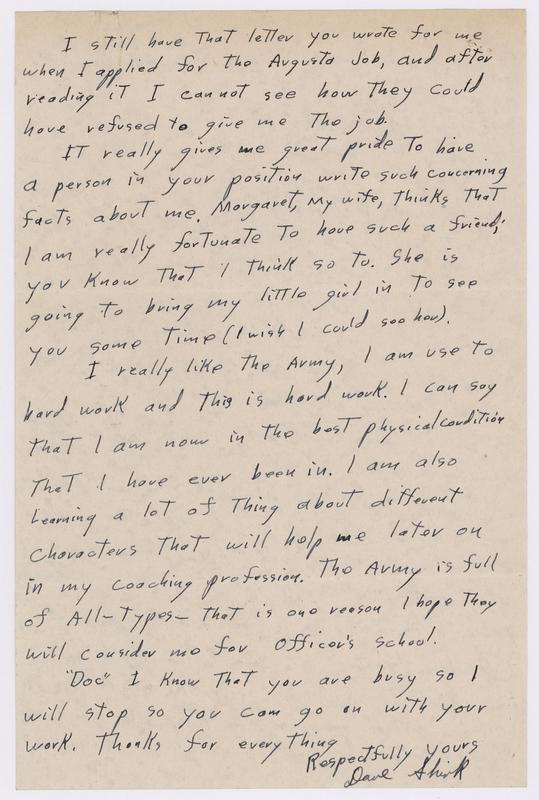 I still have that letter you wrote for me
when I applied for the Augusta Job, and after
reading it I cannot see how they could
have refused to give me the job.
IT really gives me great pride to have
a person in your position write such concerning
facts about me. Margaret, my wife, thinks that
I am really fortunate to have such a friend;
you know that I think so to. She is
going to bring my little girl in to see
you some time (I wish I could see her).
I really like the Army, I am use to
hard work and this is hard work. I can say
that I am now in the best physical condition
that I have ever been in. I am also
learning a lot of thing about different
characters that will help me later on
in my coaching profession. The Army is full
of All-types- that is one reason I hope they
will consider me for Officer's school.
"Doc" I know that you are busy so I
will stop so you can go on with your
work. Thanks for everything
Respectfully yours
Dave Shirk